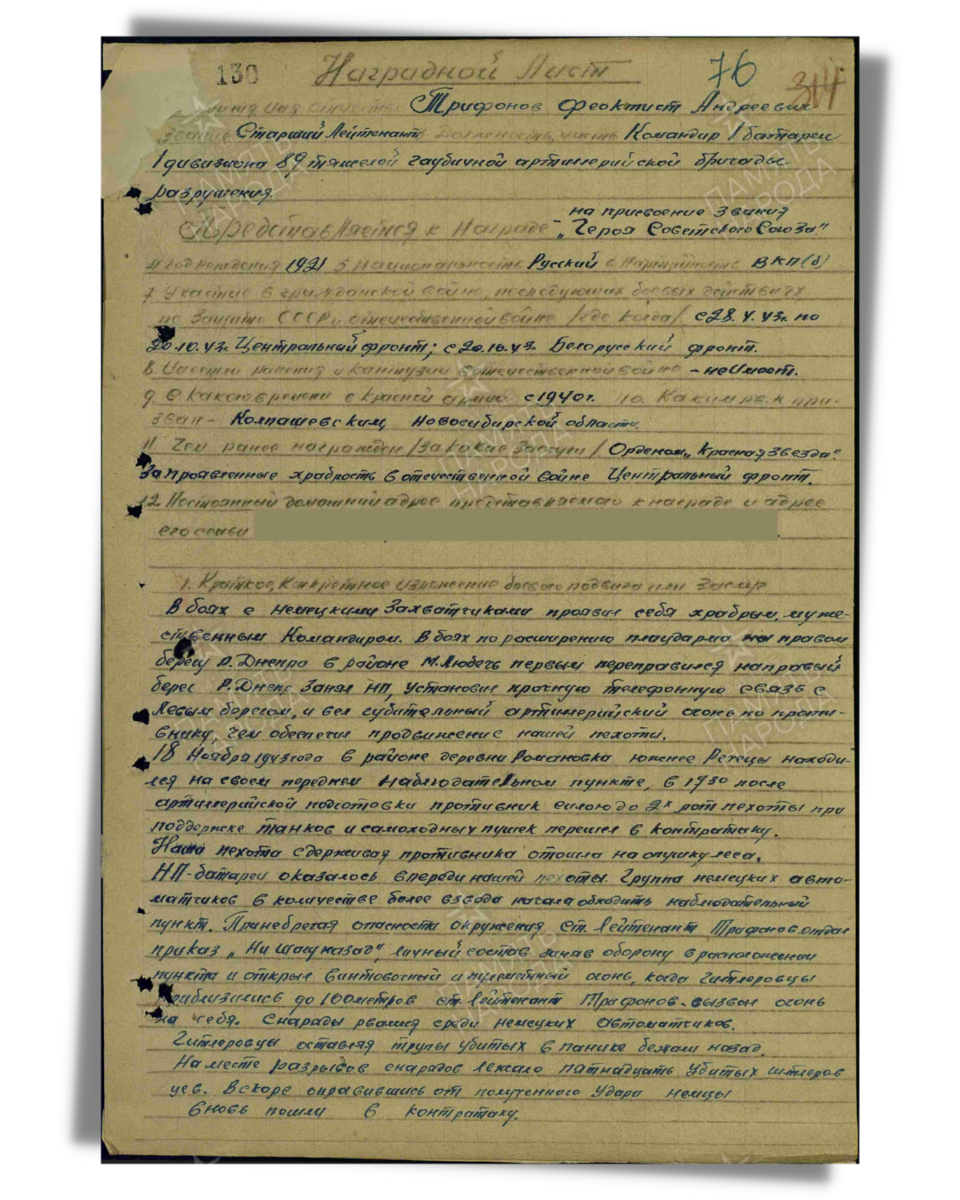 130
Наградной Лист
76
314
Трифонов Феоктист Андреевич
звание Старший Лейтенант Должность, часть Командир 1 баттареи
1 дивизиона 89 тяжелой гаубичной артиллерийской бригады
разрушения.
на присвоение звания
Представляется к Награде - „Героя Советского Союза"
4 год рождения 1921 5 Национальность Русский 6 Партийность ВКП(б)
7 Участие в гражданской войне, последующих боевых действиях
по Защите СССР и отечественной войне /где когда/ с 28.V.43г. по
20.10.43г. Центральный фронт; с 20.10.43г. Белорусский фронт.
8. ранения и контузии в отечественной войне - не имеет.
9. С какого времени в Красной армии с 1940г. 10. Каким рвк при-
зван - Колпашевским, Новосибирской области.
11. Чем ранее награжден /за какие заслуги/ Орденом „Красная звезда".
За проявленные храбрость в отечественной войне Центральный фронт.
12 Постоянный домашний адрес представляемого к награде и адрес
его семьи
1. Краткое, Конкретное изложение боевого подвига или заслуг
В боях с немецкими Захватчиками проявил себя храбрым, муже-
ственным Командиром. В боях по расширению плацдарма на правом
берегу р. Днепра в районе М. Любечь первым переправился на правый
берег р. Днепр Занял НП, установил прочную телефонную связь с
Левым берегом, и вел губительный артиллерийский огонь по проти-
внику, чем обеспечил продвижение нашей пехоты.
18 Ноября 1943 года в районе деревни Романовка южнее Речецы находи-
лся на своем переднем наблюдательном пункте, в 17 30 после
артиллерийской подготовки противник силою до 2х рот пехоты при
поддержке танков и самоходных пушек перешел в контратаку.
Наша пехота сдерживая противника отошла на опушку леса.
НП-батареи оказалось впереди нашей пехоты. Группа немецких авто-
матчиков в количестве более взвода начала обходить наблюдательный
пункт. Принебрегая опасность окружения Ст. Лейтенант Трифонов отдал
приказ „Ни шагу назад", личный состав занял оборону в расположении
пункта и открыл винтовочный и пулеметный огонь, когда гитлеровцы
приблизились до 100 метров ст. Лейтенант Трифонов. вызвал огонь
на себя. Снаряды рвались среди немецких автоматчиков.
Гитлеровцы оставляя трупы убитых в панике бежали назад.
На месте разрывов снарядов лежало пятнадцать убитых гитлеров
цев. Вскоре оправившись от полученного Удара немцы
вновь пошли в контратаку.
ПАМЯТЬ НАРОДА